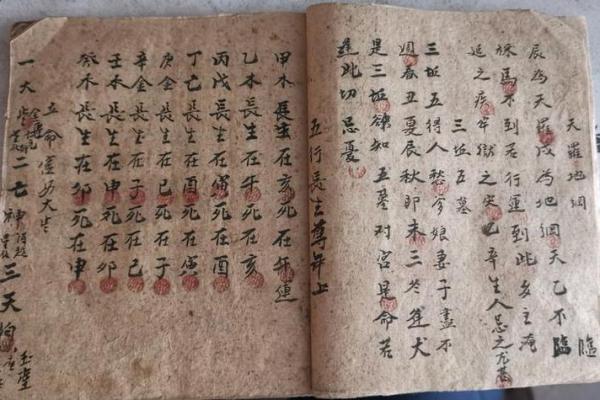 天羅地網
辰為天羅戌為地網天乙不臨
祿馬不到若行運到此多主淹
延之疾牢獄之災乙辛生人忌之尤甚
三坵五墓
三坵五得人愁爹娘妻子盡不
週春丑夏辰秋即未三冬逢犬
是三坵欲知五墓对宮是命若
逢此切忌憂
五行長生尊年上
甲木長生在亥死在午運
乙木長生在午死在亥
丙戊長生在寅死在酉
丁己長生在酉死在寅
庚金長生在巳死在子
辛金長生在子死在巳
壬水長生在申死在卯
癸水長生在卯死在申
立命宮安大生
一大 二亡神 三天狗